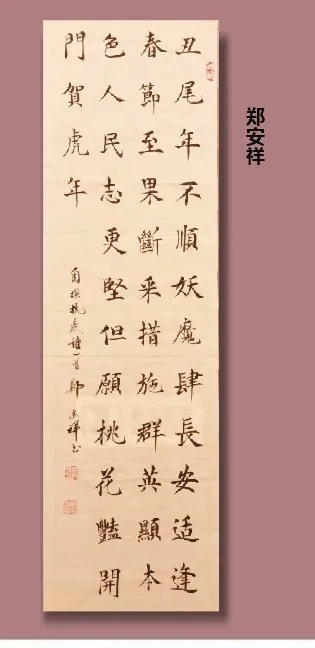 郑安祥
丑尾年不順妖魔肆長安适逢
春節至果斷采措施群英顯本
色人民志更堅但願桃花豔開
門賀虎年
自撰抗疫詩一首鄭安祥书